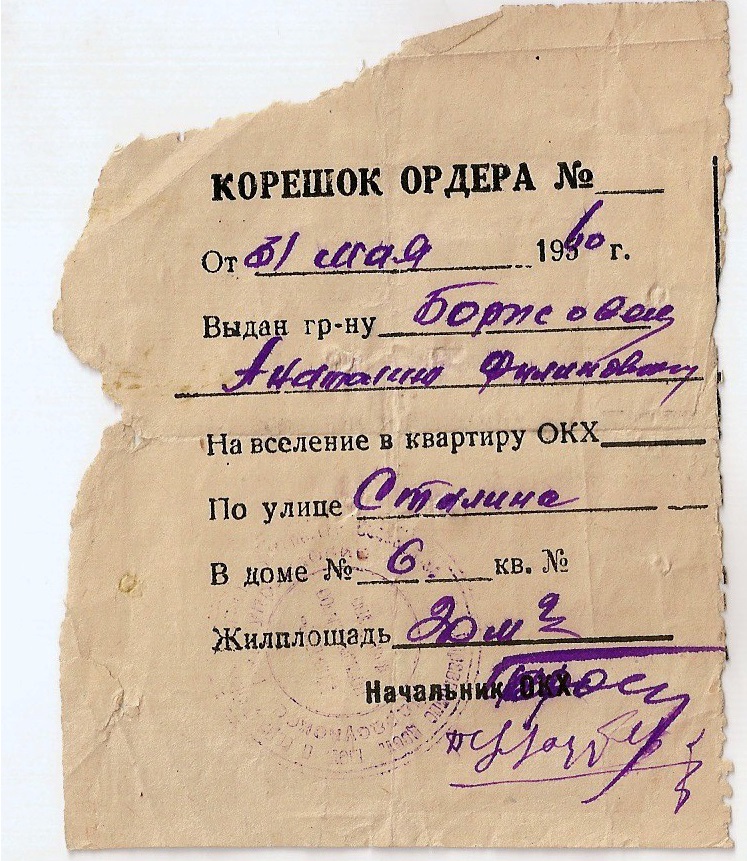 КОРЕШОК ОРДЕРА №
От 31 мая 1960 г.
Выдан гр-ну Борисовец
Анаталит Филиповичу
На вселение в квартиру ОКХ
По улице Сталина
В доме № 6. кв. №
Жилплощадь 20 м2
Начальник ОКХ